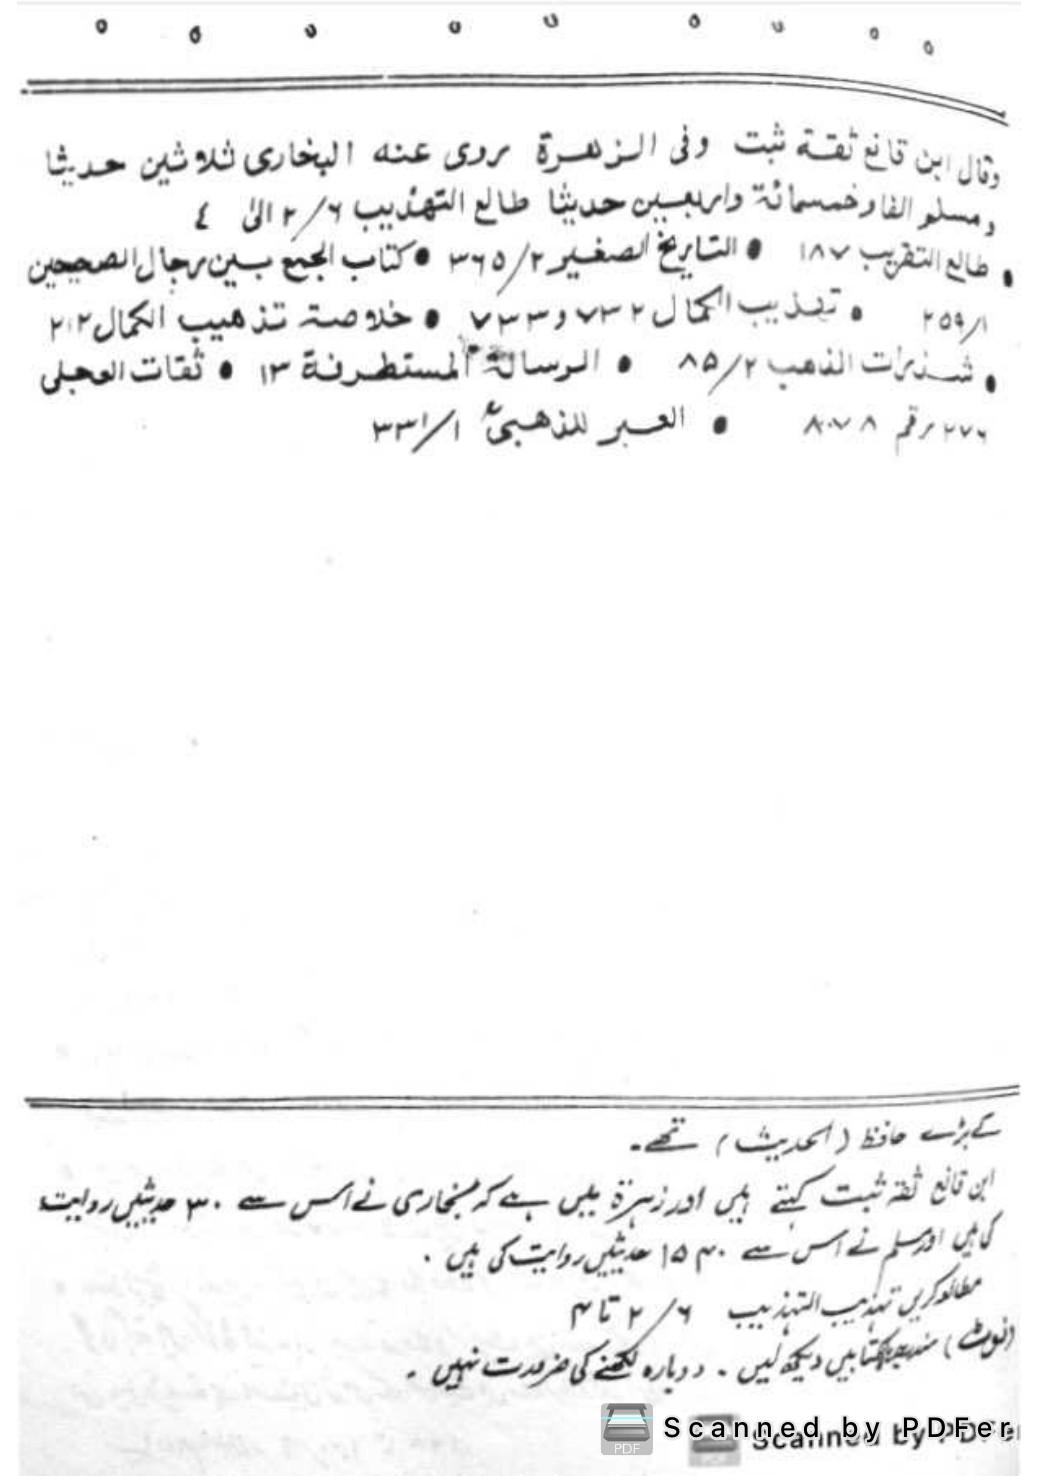 وقال ابن قانع ثقة ثبت وفی الزهرة روی عنه البخاری ثلاثین حدیثا
ومسلم الفا وخمسمائة واربعین حدیثا طالع التهذیب ۶/۲ الی ٤
• طالع التقریب ۱۸۷ • التاریخ الصغیر ۲/۳٦۵ • کتاب الجمع بین رجال الصحیحین
۱/۲۵۹ • تهذیب الکمال ۷۳۲ و ۷۳۳ • خلاصة تذهیب الکمال ۲۱۲
• شذرات الذهب ۲/۸۵ • الرسالة المستطرفة ۱۳ • ثقات العجلی
۲۷۶ رقم ۸۰۷۸ • العبر للذهبی ۱/۳۳۱
کے بڑے حافظ (الحدیث) تھے۔
ابن قانع ثقہ ثبت کہتے ہیں اور زہرۃ میں ہے کہ بخاری نے اس سے ۳۰ حدیثیں روایت
کی ہیں اور مسلم نے اس سے ۱۵۴۰ حدیثیں روایت کی ہیں ۔
مطالعہ کریں تہذیب التہذیب ۶/۲ تا ۴
(نوٹ) مندرجہ کتابیں دیکھ لیں ۔ دوبارہ لکھنے کی ضرورت نہیں ۔
Scanned by PDFer
Scanned by PDFer